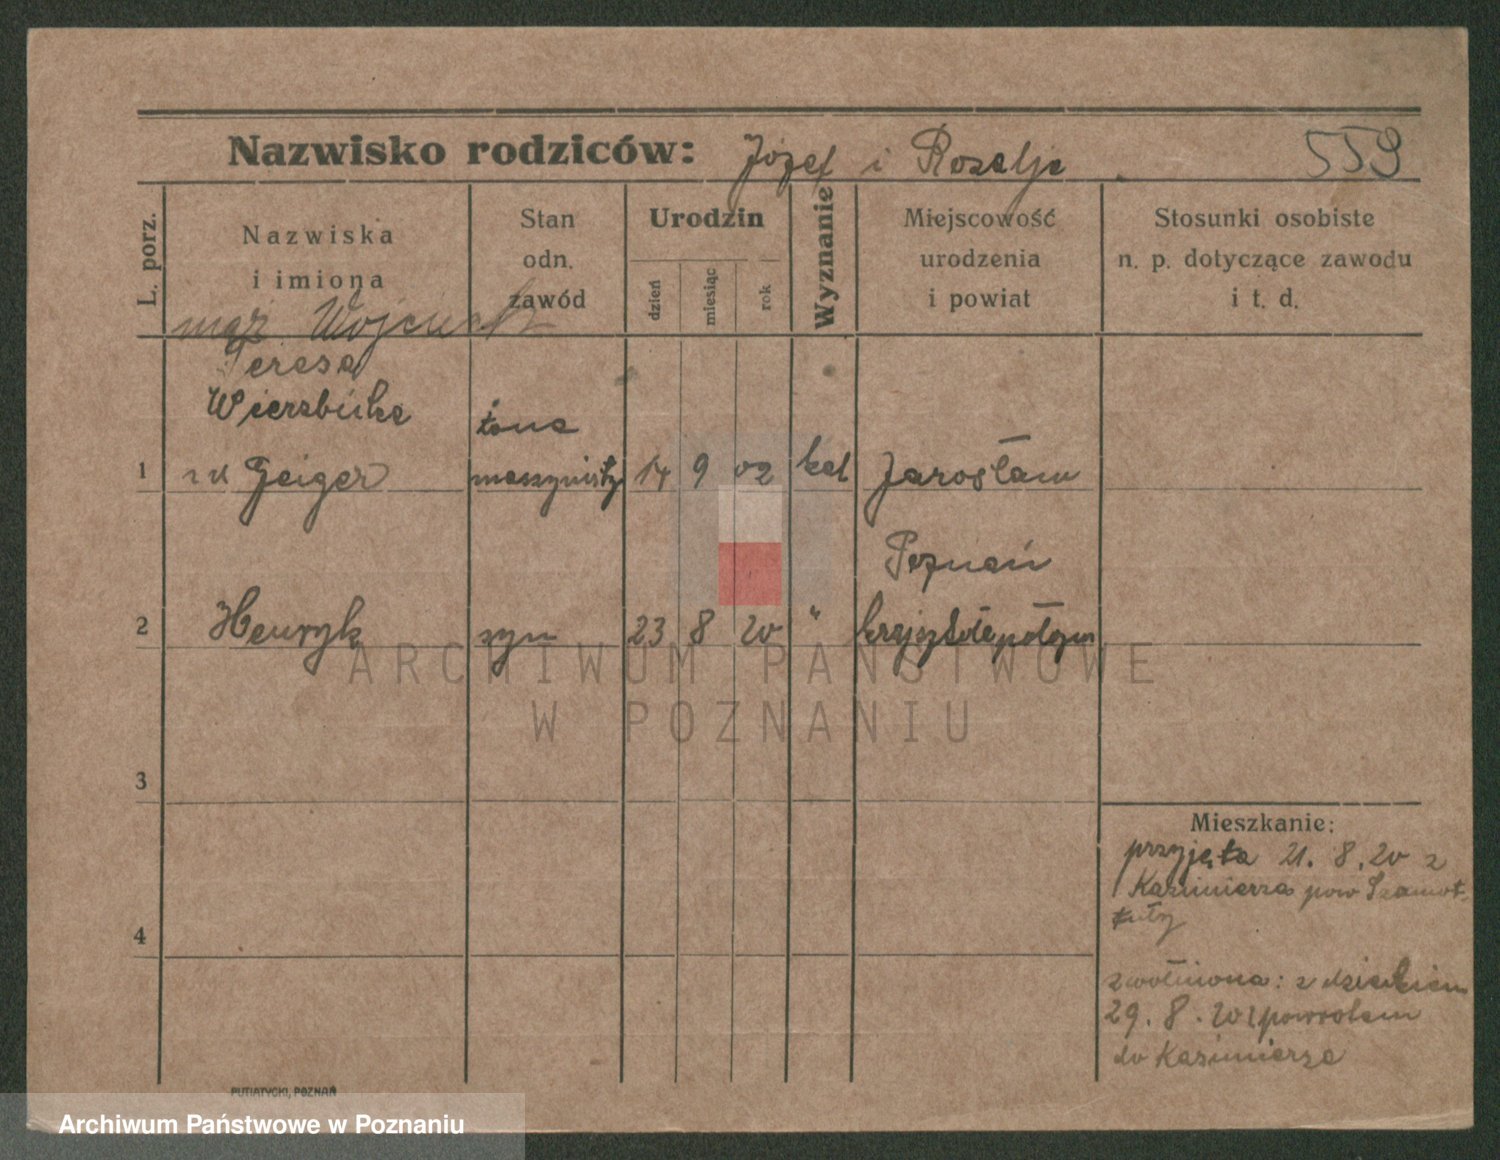 Nazwisko rodziców: Józef i Rozalja 559
L. porz.
Nazwiska
i imiona
Stan
odn.
zawód
Urodzin
dzień
miesiąc
rok
Wyznanie
Miejscowość
urodzenia
i powiat
Stosunki osobiste
n. p. dotyczące zawodu
i t. d.
mąż Wojciech
Teresa
Wierzbicka żona
1 z d Geiger maszynisty 14 9 02 kat Jarosław
Poznań
2 Henryk syn 23 8 20 "
3
4
Mieszkanie:
przyjęta 21. 8. 20 z
Kazimierza pow Szamot-
tuły
zwolniona: z dzieckiem
29. 8. 20 z powrotem
do Kazimierza
PUTIATYCKI, POZNAŃ
ARCHIWUM PAŃSTWOWE
W POZNANIU
Archiwum Państwowe w Poznaniu